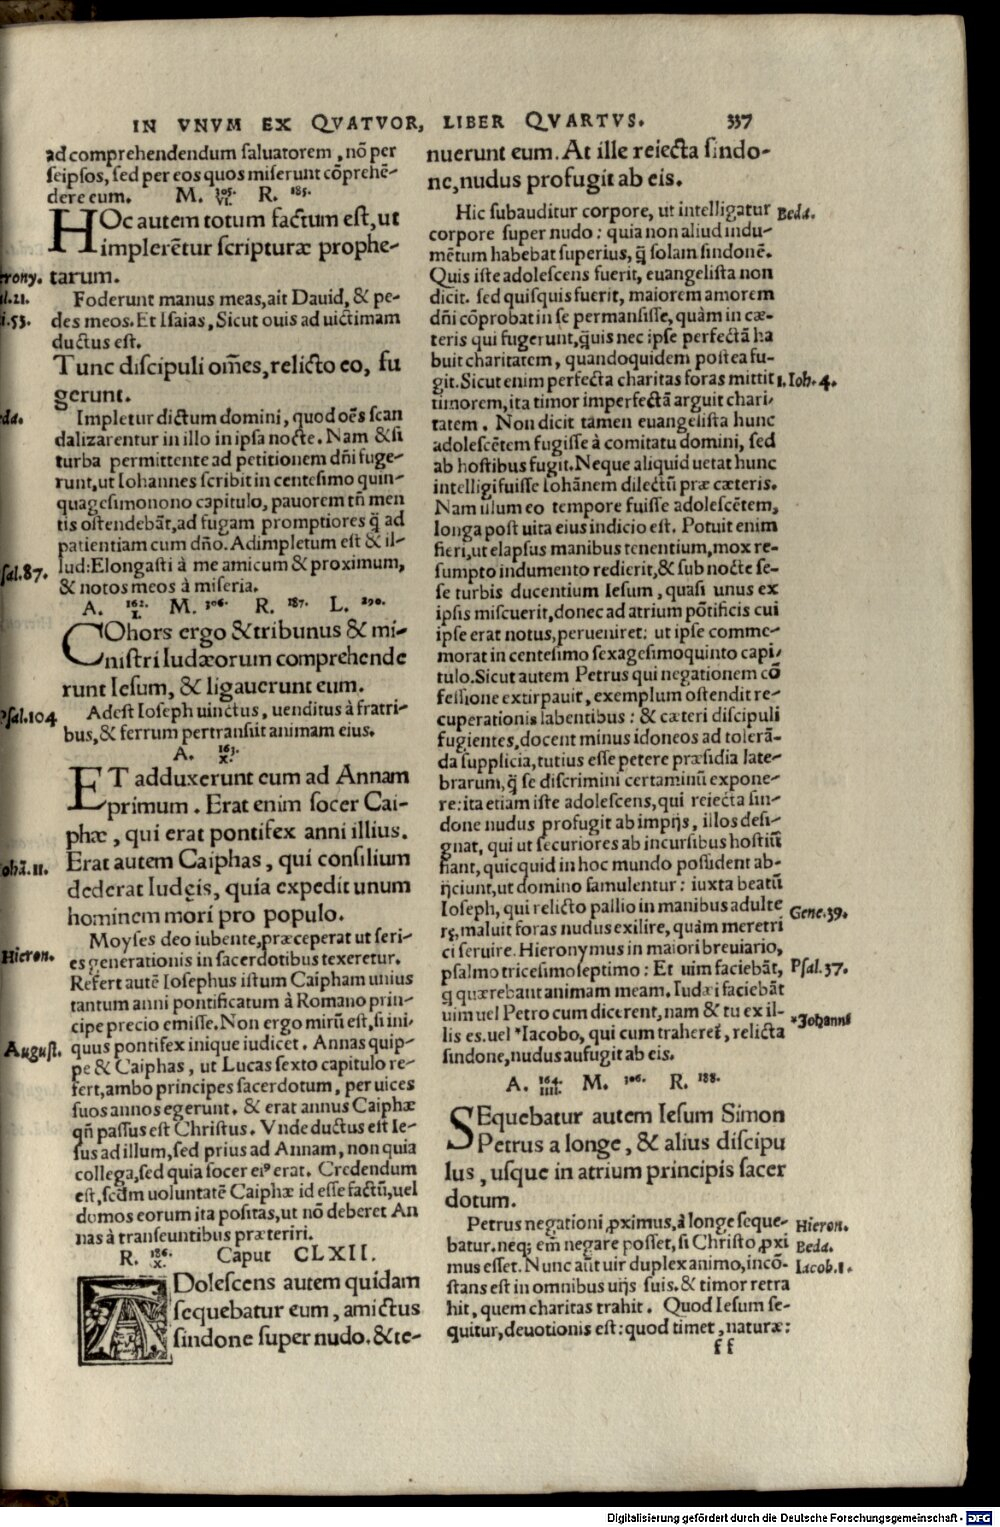 IN VNVM EX QVATVOR, LIBER QVARTVS. 337
ad comprehendendum saluatorem, nõ per
seipsos, sed per eos quos miserunt cõprehē-
dere eum. M. 305. VI. R. 185.
HOc autem totum factum est, ut
implerētur scripturæ prophe-
rony. tarum.
l.21. Foderunt manus meas, ait Dauid, & pe-
i.53. des meos. Et Isaias, Sicut ouis ad uictimam
ductus est.
Tunc discipuli om̃es, relicto eo, fu
gerunt.
da. Impletur dictum domini, quod oẽs scan
dalizarentur in illo in ipsa nocte. Nam & si
turba permittente ad petitionem dñi fuge-
runt, ut Iohannes scribit in centesimo quin-
quagesimonono capitulo, pauorem tñ men
tis ostendebãt, ad fugam promptiores q̃ ad
patientiam cum dño. Adimpletum est & il-
sal.87. lud: Elongasti à me amicum & proximum,
& notos meos à miseria.
A. 162. I. M. 306. R. 187. L. 290.
COhors ergo & tribunus & mi-
nistri Iudæorum comprehende
runt Iesum, & ligauerunt eum.
Psal.104 Adest Ioseph uinctus, uenditus à fratri-
bus, & ferrum pertransiit animam eius.
A. 163. X.
ET adduxerunt eum ad Annam
primum. Erat enim socer Cai-
phæ, qui erat pontifex anni illius.
ohã.11. Erat autem Caiphas, qui consilium
dederat Iudęis, quia expedit unum
hominem mori pro populo.
Moyses deo iubente, præceperat ut seri-
Hieron. es generationis in sacerdotibus texeretur.
Refert autẽ Iosephus istum Caipham unius
tantum anni pontificatum à Romano prin-
cipe precio emisse. Non ergo mirũ est, si ini,
August. quus pontifex inique iudicet. Annas quip-
pe & Caiphas, ut Lucas sexto capitulo re-
fert, ambo principes sacerdotum, per uices
suos annos egerunt. & erat annus Caiphæ
qñ passus est Christus. Vnde ductus est Ie-
sus ad illum, sed prius ad Annam, non quia
collega, sed quia socer ei⁹ erat. Credendum
est, scd̃m uoluntatẽ Caiphæ id esse factũ, uel
domos eorum ita positas, ut nõ deberet An
nas à transeuntibus præteriri.
R. 186. X. Caput CLXII.
ADolescens autem quidam
sequebatur eum, amictus
sindone super nudo. & te-
nuerunt eum. At ille reiecta sindo-
ne, nudus profugit ab eis.
Hic subauditur corpore, ut intelligatur Beda.
corpore super nudo: quia non aliud indu-
mẽtum habebat superius, q̃ solam sindonẽ.
Quis iste adolescens fuerit, euangelista non
dicit. sed quisquis fuerit, maiorem amorem
dñi cõprobat in se permansisse, quàm in cæ-
teris qui fugerunt, q̃uis nec ipse perfectã ha
buit charitatem, quandoquidem postea fu-
git. Sicut enim perfecta charitas foras mittit 1. Ioh. 4.
timorem, ita timor imperfectã arguit chari,
tatem. Non dicit tamen euangelista hunc
adolescẽtem fugisse à comitatu domini, sed
ab hostibus fugit. Neque aliquid uetat hunc
intelligi fuisse Iohãnem dilectũ præ cæteris.
Nam illum eo tempore fuisse adolescẽtem,
longa post uita eius indicio est. Potuit enim
fieri, ut elapsus manibus tenentium, mox re-
sumpto indumento redierit, & sub nocte se-
se turbis ducentium Iesum, quasi unus ex
ipsis miscuerit, donec ad atrium põtificis cui
ipse erat notus, perueniret: ut ipse comme-
morat in centesimo sexagesimoquinto capi,
tulo. Sicut autem Petrus qui negationem cõ
fessione extirpauit, exemplum ostendit re-
cuperationis labentibus: & cæteri discipuli
fugientes, docent minus idoneos ad tolerã-
da supplicia, tutius esse petere præsidia late-
brarum, q̃ se discrimini certaminũ expone-
re: ita etiam iste adolescens, qui reiecta sin-
done nudus profugit ab impijs, illos desi-
gnat, qui ut securiores ab incursibus hostiũ
fiant, quicquid in hoc mundo possident ab-
ijciunt, ut domino famulentur: iuxta beatũ
Ioseph, qui relicto pallio in manibus adulte Gene.39.
rę, maluit foras nudus exilire, quàm meretri
ci seruire. Hieronymus in maiori breuiario,
psalmo tricesimoseptimo: Et uim faciebãt, Psal.37.
q quærebant animam meam. Iudæi faciebãt
uim uel Petro cum dicerent, nam & tu ex il-
lis es. uel *Iacobo, qui cum traheret̃, relicta *Iohanni
sindone, nudus aufugit ab eis.
A. 164. IIII. M. 306. R. 188.
SEquebatur autem Iesum Simon
Petrus a longe, & alius discipu
lus, usque in atrium principis sacer
dotum.
Petrus negationi ꝓximus, à longe seque- Hieron.
batur. neq; em̃ negare posset, si Christo ꝓxi Beda.
mus esset. Nunc aũt uir duplex animo, incõ- Iacob.1.
stans est in omnibus uijs suis. & timor retra
hit, quem charitas trahit. Quod Iesum se-
quitur, deuotionis est: quod timet, naturæ:
ff
Digitalisierung gefördert durch die Deutsche Forschungsgemeinschaft - DFG